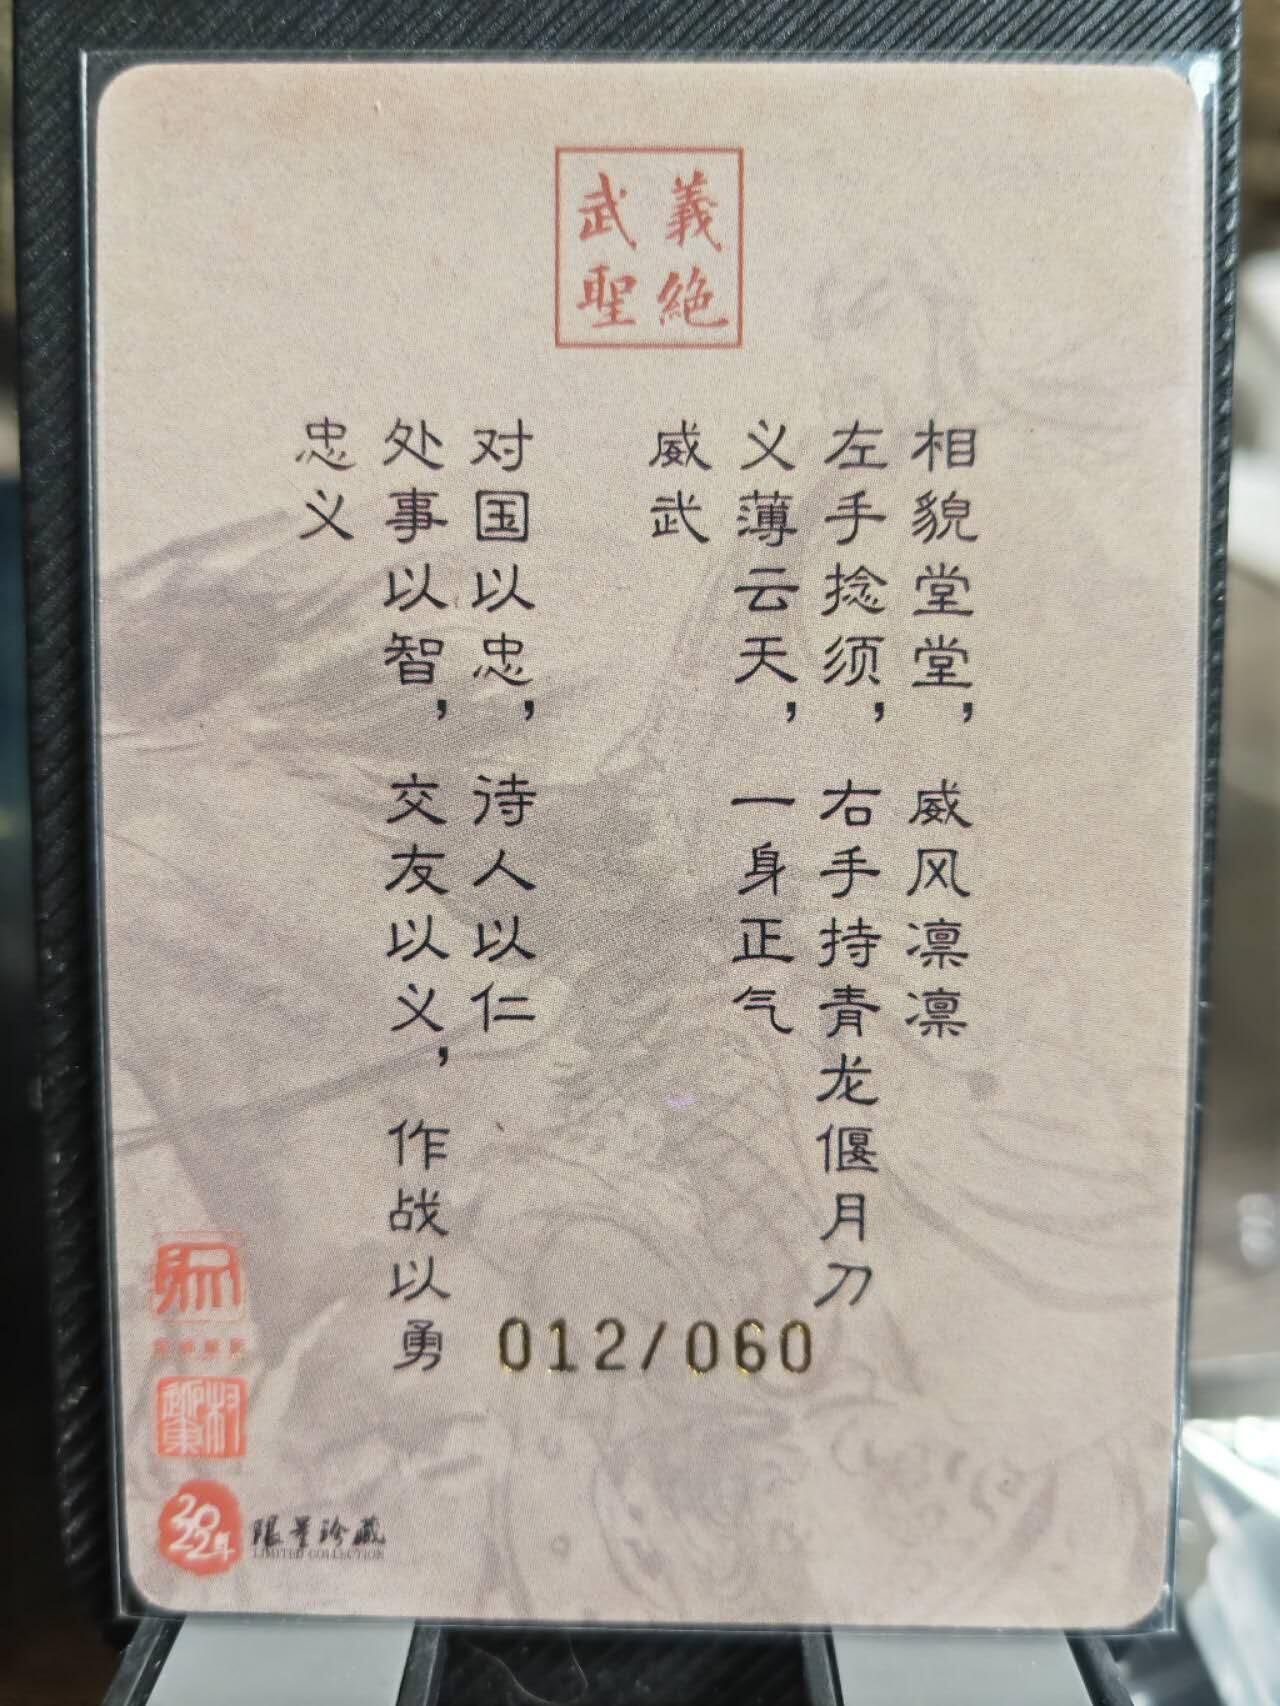 義絶
武聖
相貌堂堂，威风凛凛
左手捻须，右手持青龙偃月刀
义薄云天，一身正气
威武
对国以忠，待人以仁
处事以智，交友以义，作战以勇
忠义
012/060
2022年
限量珍藏
LIMITED COLLECTION